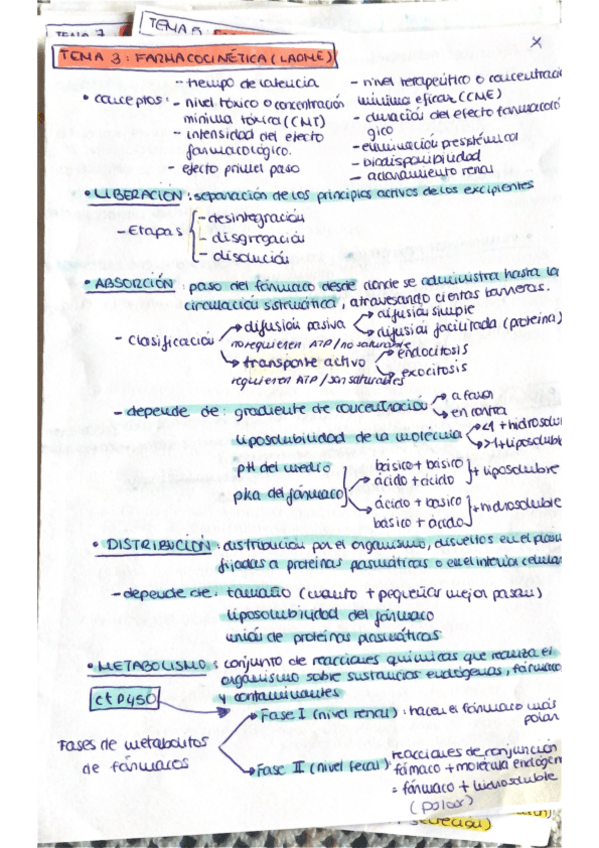 TEMA 5:
TEMA 3: FARMACOCINÉTICA (LADME)
x
• conceptos: - tiempo de latencia
- nivel tóxico o concentración mínima tóxica (CMT)
- intensidad del efecto farmacológico.
- efecto primer paso
- nivel terapéutico o concentraci
mínima eficaz (CME)
- duración del efecto farmacoló
gico
- eliminación presistémica
- biodisponibilidad
- aclaramiento renal
• LIBERACIÓN: separación de los principios activos de los excipientes
- Etapas
- desintegración
- disgregación
- disolución
• ABSORCIÓN: paso del fármaco desde donde se administra hasta la
circulación sistemática, atravesando ciertas barreras.
- clasificación
difusión pasiva
difusión simple
difusión facilitada (proteína)
no requieren ATP/no saturable
transporte activo
endocitosis
exocitosis
requieren ATP/son saturables
- depende de: gradiente de concentración
a favor
en contra
liposolubilidad de la molécula
<1 + hidrosolu
>1 + liposolubl
pH del medio
pka del fármaco
básico + básico
ácido + ácido
+ liposoluble
ácido + básico
básico + ácido
+ hidrosoluble
• DISTRIBUCIÓN: distribución por el organismo, disueltos en el plasm
fijados a proteínas plasmáticas o en el interior celular
- depende de: tamaño (cuanto + pequeñas mejor pasan)
liposolubilidad del fármaco
unión de proteínas plasmáticas
• METABOLISMO: conjunto de reacciones químicas que realiza el
organismo sobre sustancias endógenas, fármaco
y contaminantes
ctP450
Fases de metabolitos
de fármacos
Fase I (nivel renal): hacen el fármaco más
polar
Fase II (nivel fecal)
reacciones de conjunción
fármaco + molécula endógen
= fármaco + hidrosoluble
(polar)
secreción)